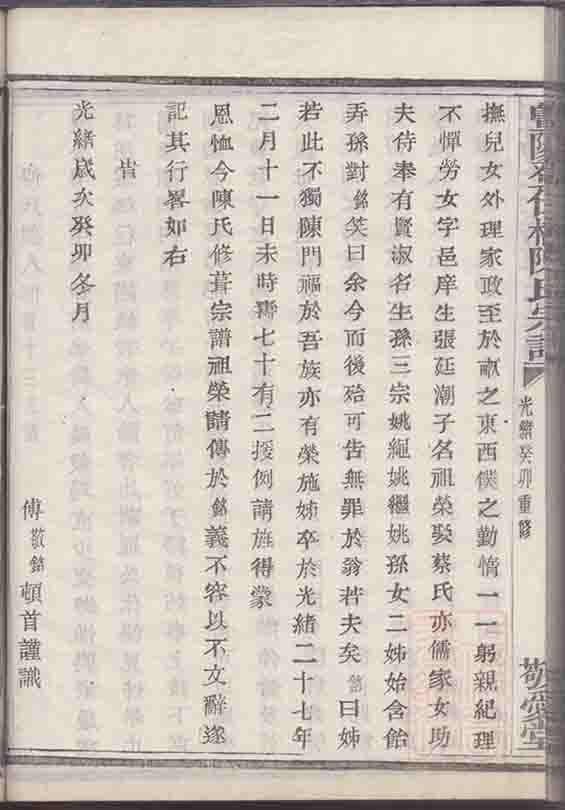 陳氏宗譜
光緒癸卯重修
敬愛堂
撫兒女外理家政至於畝之東西僕之勤惰一一躬親紀理
不憚勞女字邑庠生張廷潮子名祖榮娶蔡氏亦儒家女助
夫侍奉有賢淑名生孫三宗姚繩姚繼姚孫女二姊始含飴
弄孫對銘笑曰余今而後殆可告無罪於翁若夫矣銘曰姊
若此不獨陳門福於吾族亦有榮施姊卒於光緒二十七年
二月十一日未時壽七十有二援例請旌得蒙
恩恤今陳氏修葺宗譜祖榮請傳於銘義不容以不文辭遂
記其行畧如右
旹
光緒歲次癸卯冬月
傅敬銘頓首謹識